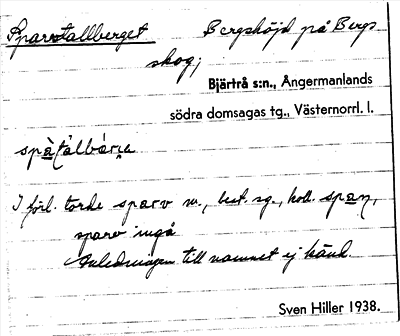 Sparrtallberget Bergshöjd på Bergs
skog;
Bjärtrå s:n., Ångermanlands
södra domsagas tg., Västernorrl. l.
I förl. torde sparv m., best. sg., koll. span,
sparv ingå
Anledningen till namnet ej känd.
Sven Hiller 1938.